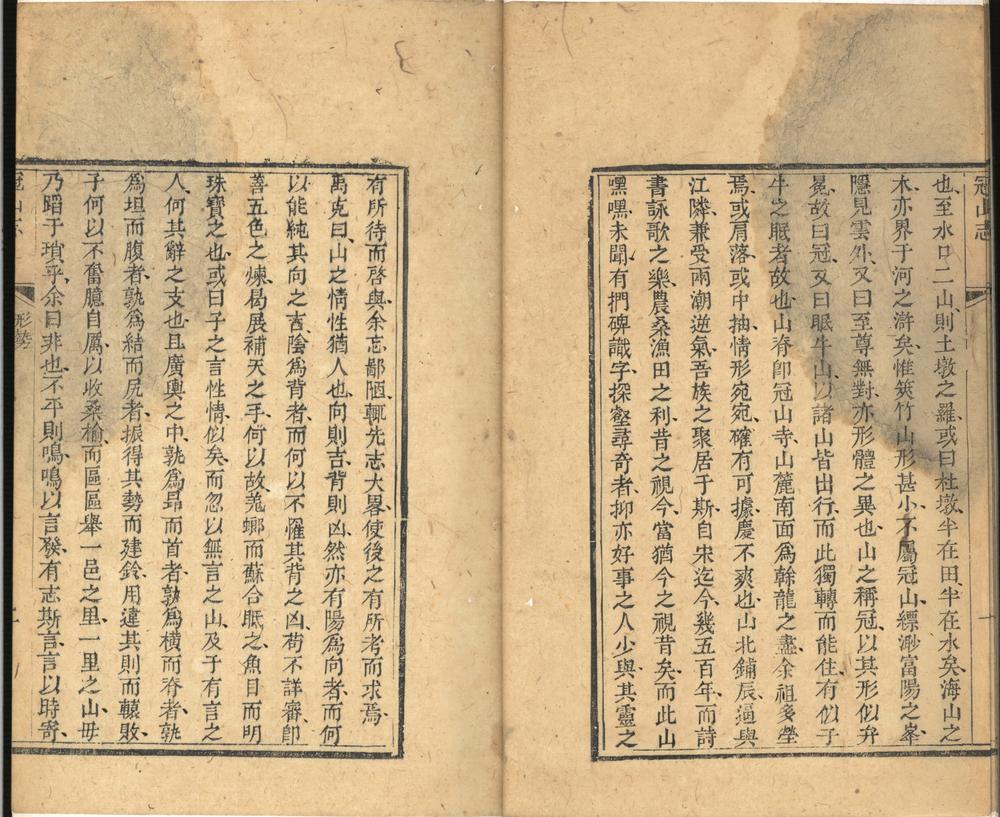 冠山志
一
也至水口二山則土墩之羅或曰杜墩半在田半在水矣海山之
木亦界于河之滸矣惟筴竹山形甚小不屬冠山縹渺富陽之峯
隱見雲外又曰至尊無對亦形體之異也山之稱冠以其形似弁
冕故曰冠又曰眠牛山以諸山皆出行而此獨轉而能住有似子
牛之眠者故也山脊卽冠山寺山麓南面爲幹龍之盡余祖多塋
焉或肩落或中抽情形宛宛確有可據慶不爽也山北鋪辰逼與
江隣兼受兩潮逆氣吾族之聚居于斯自宋迄今幾五百年而詩
書詠歌之樂農桑漁田之利昔之視今當猶今之視昔矣而此山
嘿嘿未聞有捫碑識字探壑尋奇者抑亦好事之人少與其靈之
有所待而啓與余忘鄙陋輒先志大畧使後之有所考而求焉
禹克曰山之情性猶人也向則吉背則凶然亦有陽爲向者而何
以能純其向之吉陰爲背者而何以不罹其背之凶苟不詳審卽
善五色之煉曷展補天之手何以故羗螂而蘇合眂之魚目而明
珠寶之也或曰子之言性情似矣而忽以無言之山及于有言之
人何其辭之支也且廣輿之中孰爲昻而首者孰爲橫而脊者孰
爲坦而腹者孰爲結而尻者振得其勢而建鈴用違其則而轅敗
子何以不奮臆自厲以收桑榆而區區舉一邑之里一里之山毋
乃蹈于瑣乎余曰非也不平則鳴鳴以言發有志斯言言以時寄
冠山志
形勢